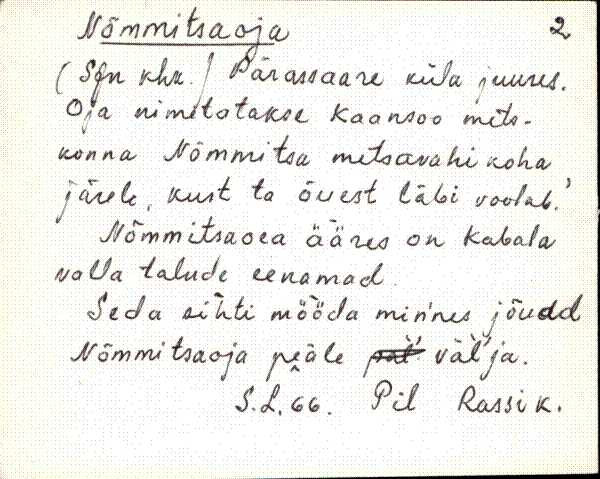 Nõmmitsaoja 2
(Sfn khk.) Pärassaare küla juures.
Oja nimetatakse Kaansoo mets-
konna Nõmmitsa metsavahi koha
järele, kust ta õuest läbi voolab.
Nõmmitsaoea ääres on Kabala
valla talude eenamad.
Seda sihti mööda min'nes jõudd
Nõmmitsaoja peäle väl'ja.
S.L. 66. Pil Rassik.